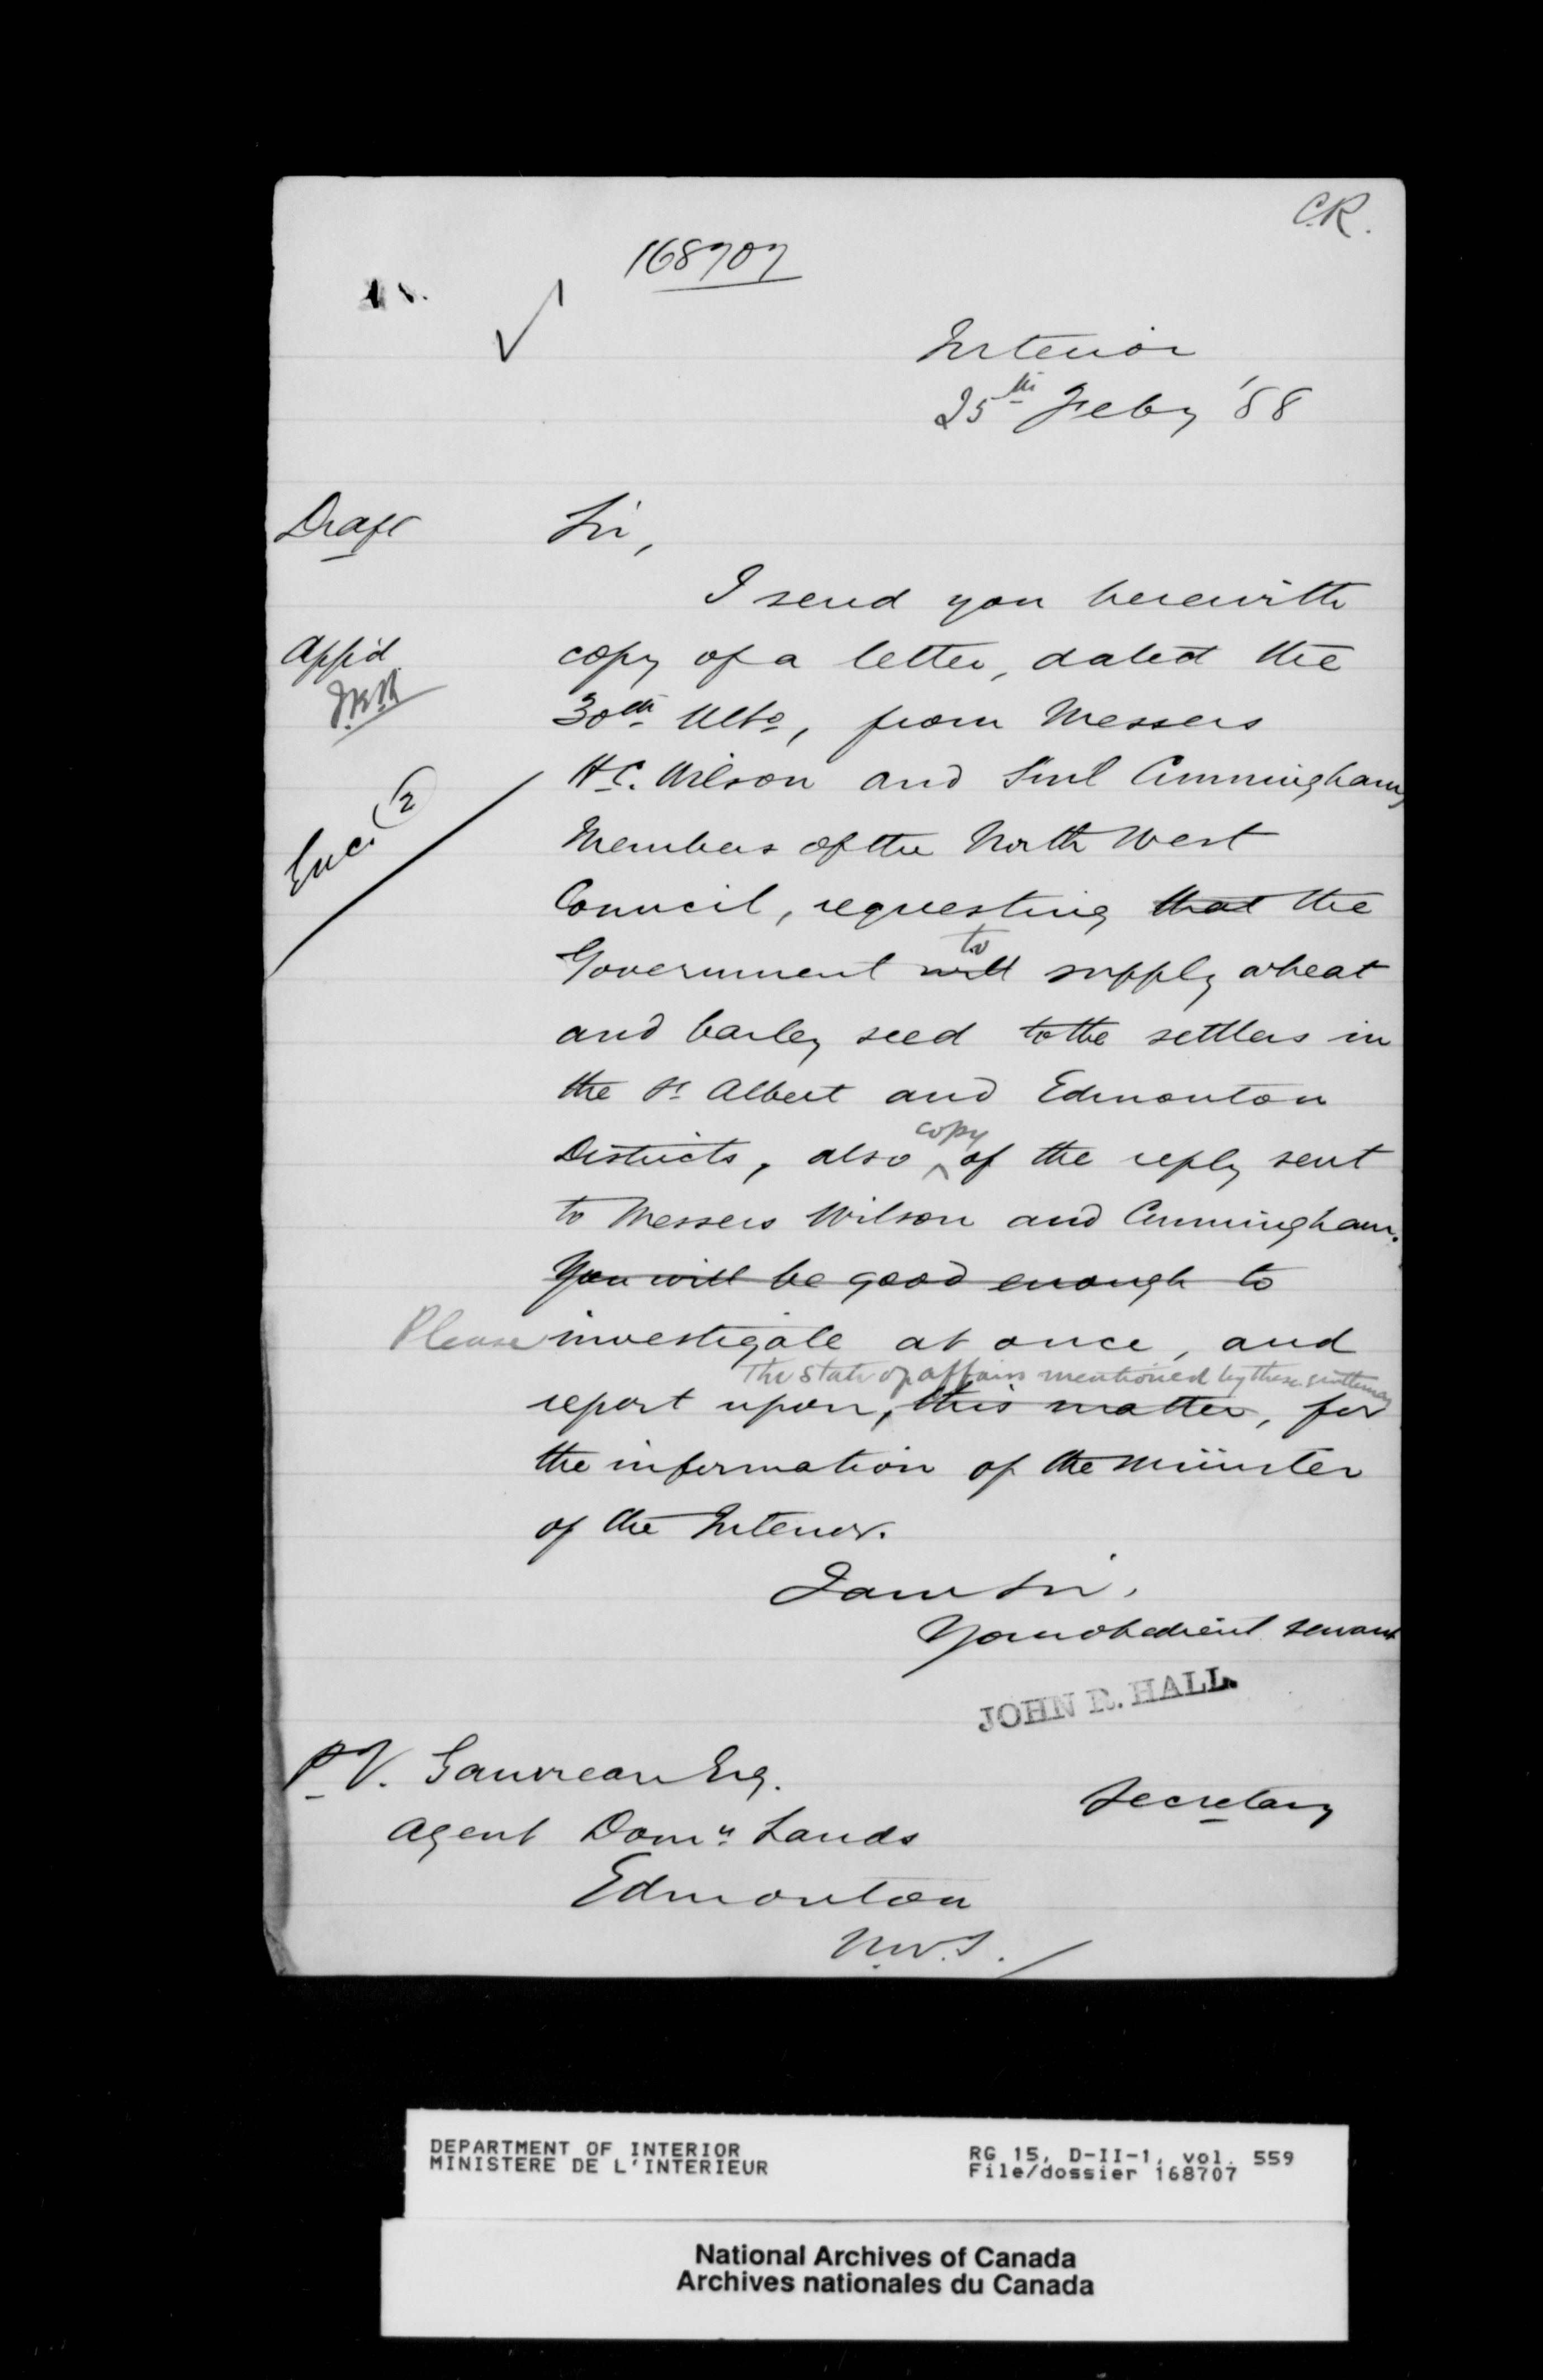 C.R.
168707
Interior
25th Feby '88
Draft
Sir,
I send you herewith
App'd
copy of a letter, dated the
J.R.H.
30th Ulto, from Messers
H.C. Wilson and Saml Cunningham,
Enc. (2)
Members of the North West
Council, requesting that the
to
Government will supply wheat
and barley seed to the settlers in
the St Albert and Edmonton
copy
Districts, also ^ of the reply sent
to Messers Wilson and Cunningham.
You will be good enough to
Please investigate at once, and
the state of affairs mentioned by these gentlemen
report upon, this matter, for
the information of the Minister
of the Interior.
I am Sir,
Your obedient servant
JOHN R. HALL.
P. V. Gauvreau Esq.
Secretary
Agent Domn Lands
Edmonton
N.W.T.
DEPARTMENT OF INTERIOR
MINISTERE DE L'INTERIEUR
RG 15, D-II-1, vol. 559
File/dossier 168707
National Archives of Canada
Archives nationales du Canada